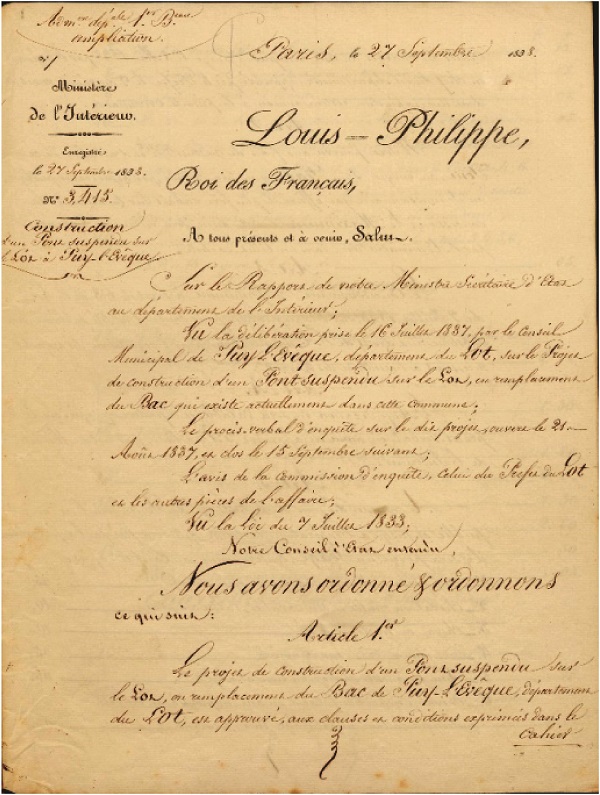 Adm.on dép.ale 1.er B.eau
ampliation.
N.º 1
Paris, le 27 Septembre 1838.
Ministère
de l'Intérieur.
Enregistré
le 27 Septembre 1838.
N.º 3,415.
Construction
d'un Pont suspendu sur
le Lot à Puy-l'Evêque
Louis-Philippe,
Roi des Français,
A tous présents et à venir, Salut.
Sur le Rapport de notre Ministre Secrétaire d'Etat
au département de l'Intérieur;
Vu la délibération prise le 16 Juillet 1837, par le Conseil
Municipal de Puy-l'Evêque, département du Lot, sur le Projet
de construction d'un Pont suspendu sur le Lot, en remplacement
du Bac qui existe actuellement dans cette commune;
Le procès-verbal d'enquête sur le dit projet, ouvert le 21
Août 1837, et clos le 15 Septembre suivant;
L'avis de la commission d'enquête, celui du Préfet du Lot
et les autres pièces de l'affaire;
Vu la Loi du 7 Juillet 1833;
Notre Conseil d'Etat entendu,
Nous avons ordonné & ordonnons
ce qui suit:
Article 1.er
Le projet de construction d'un Pont suspendu sur
le Lot, en remplacement du Bac de Puy-l'Evêque, département
du Lot, est approuvé, aux clauses et conditions exprimées dans le
Cahier